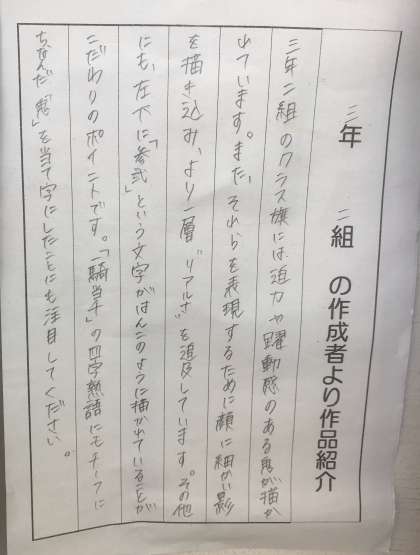 三年 二組 の作成者より作品紹介
三年二組のクラス旗には迫力や躍動感のある鬼が描か
れています。また、それらを表現するために顔に細かい影
を描き込み、より一層"リアルさ"を追及しています。その他
にも、左下に「参弐」という文字がはんこのように描かれていることが
こだわりのポイントです。「一騎当千」の四字熟語にモチーフに
ちなんだ「鬼」を当て字にしたことにも注目してください。